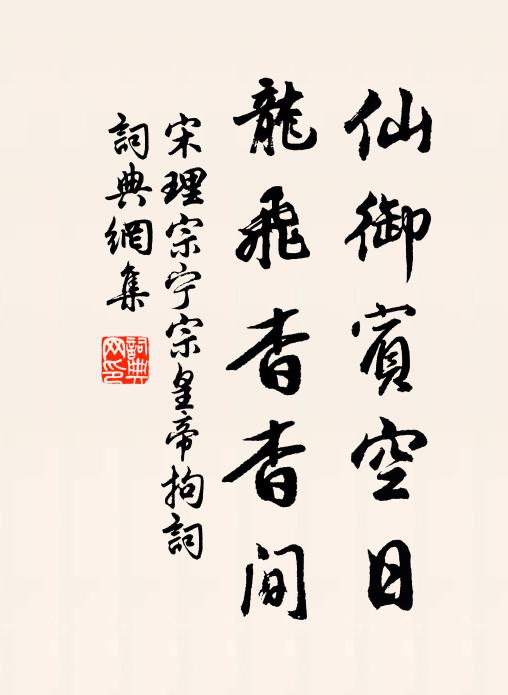 仙御賓空日
龍飛杳杳间
宋理宗宁宗皇帝拘詞
詞典網集
詞典網印